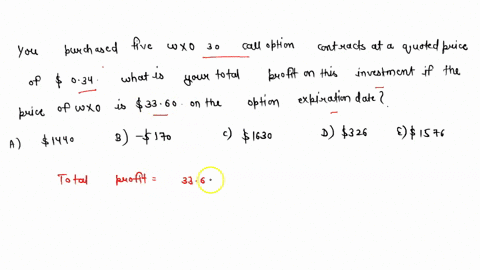 You purchased five WXO 30 call option contracts at a quoted price
of $ 0.34. what is your total profit on this investment if the
price of WXO is $33.60 on the option expiration date?
A) $1440 B) -$170 C) $1630 D) $326 E) $1576
Total profit = 33.6.